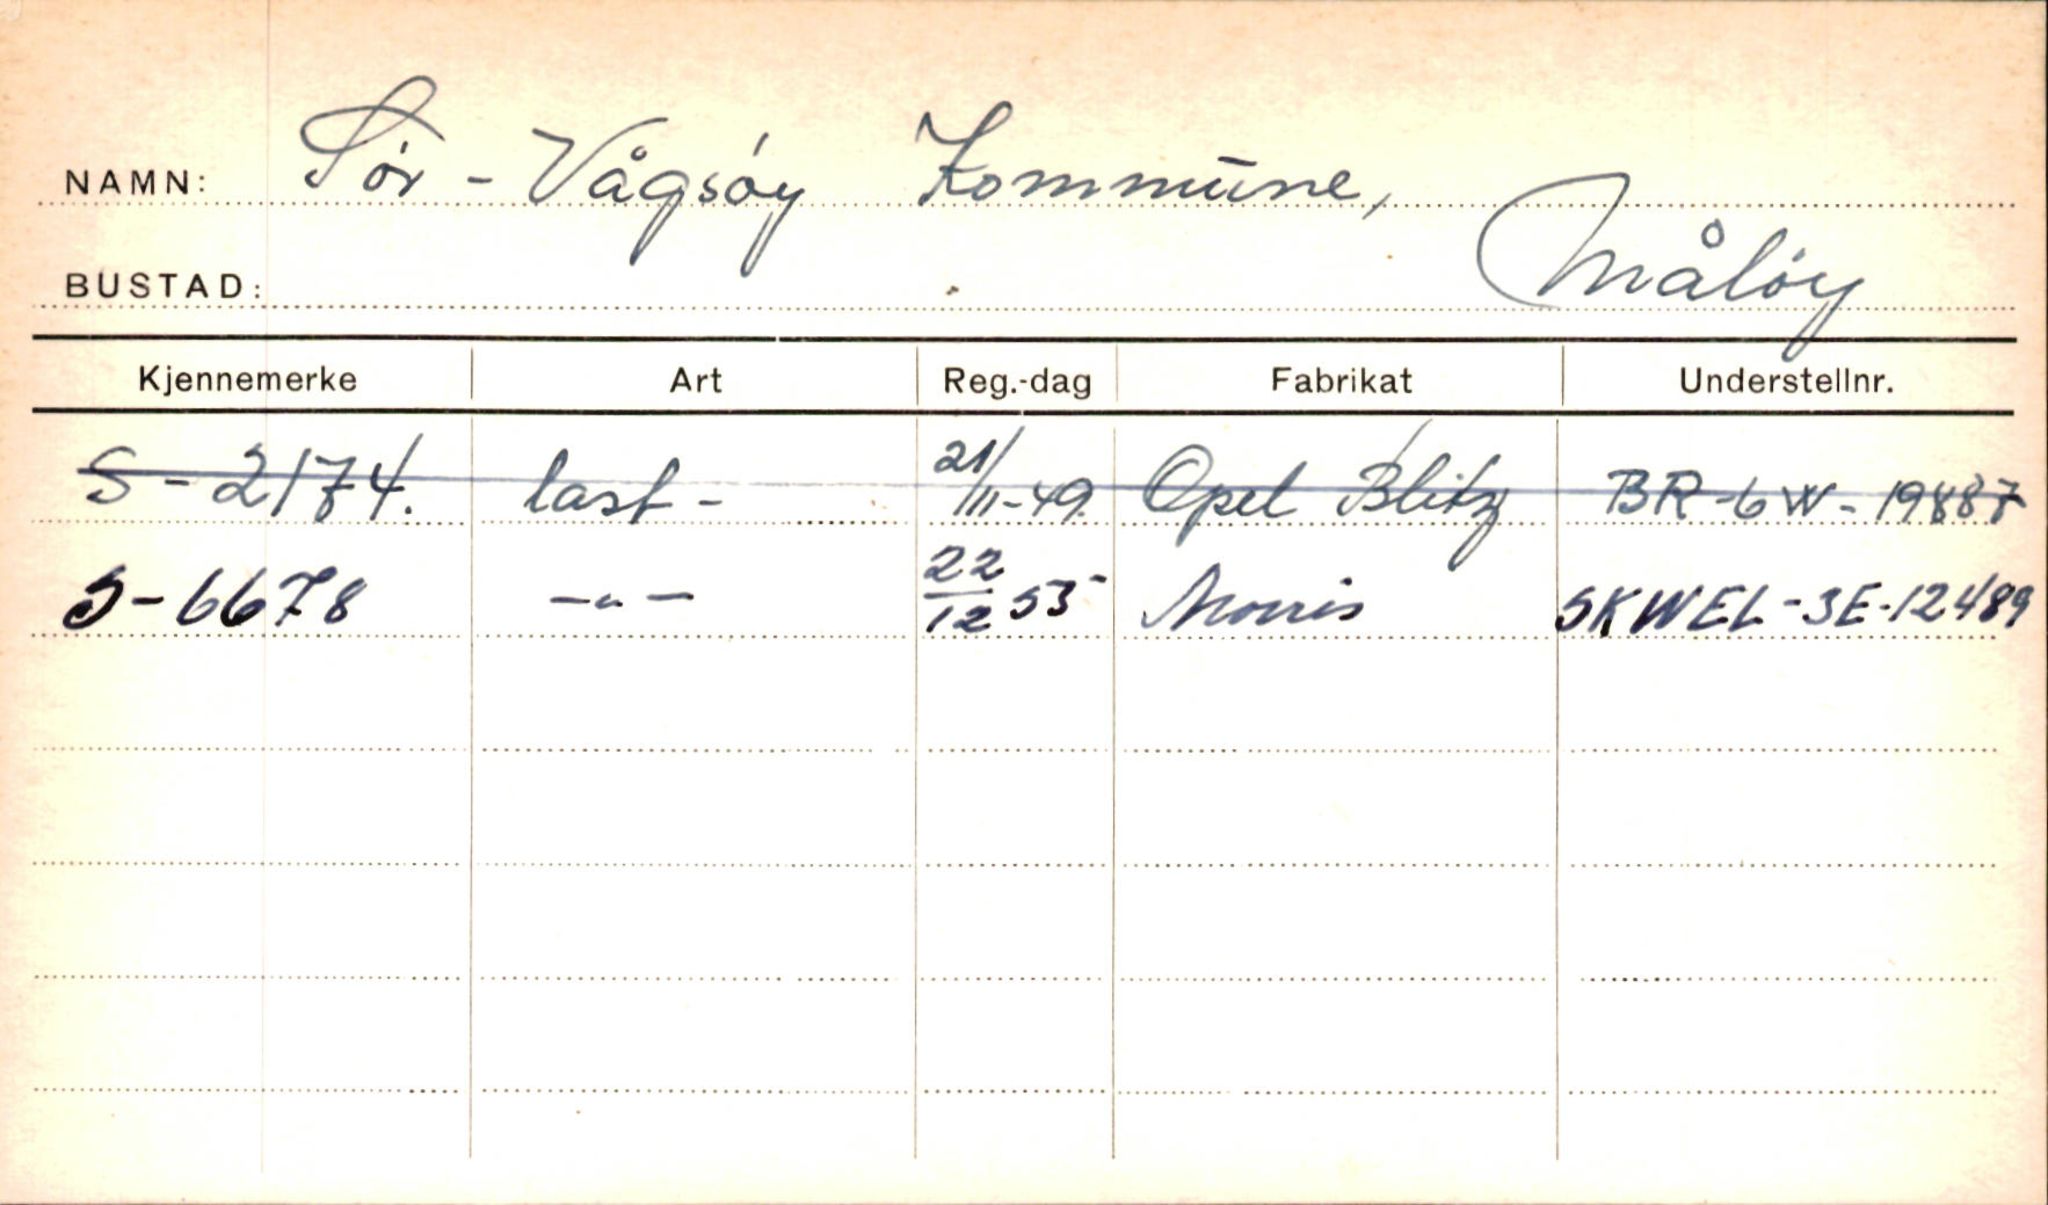 NAMN: Sór-Vågsóy Kommune,
BUSTAD: Måløy
Kjennemerke Art Reg.-dag Fabrikat Understellnr.
S-2174. last- 21/III-49. Opel Blitz BR-6W-19887
S-6678 -"- 22/12 53 Morris SKWEL-3E-12489